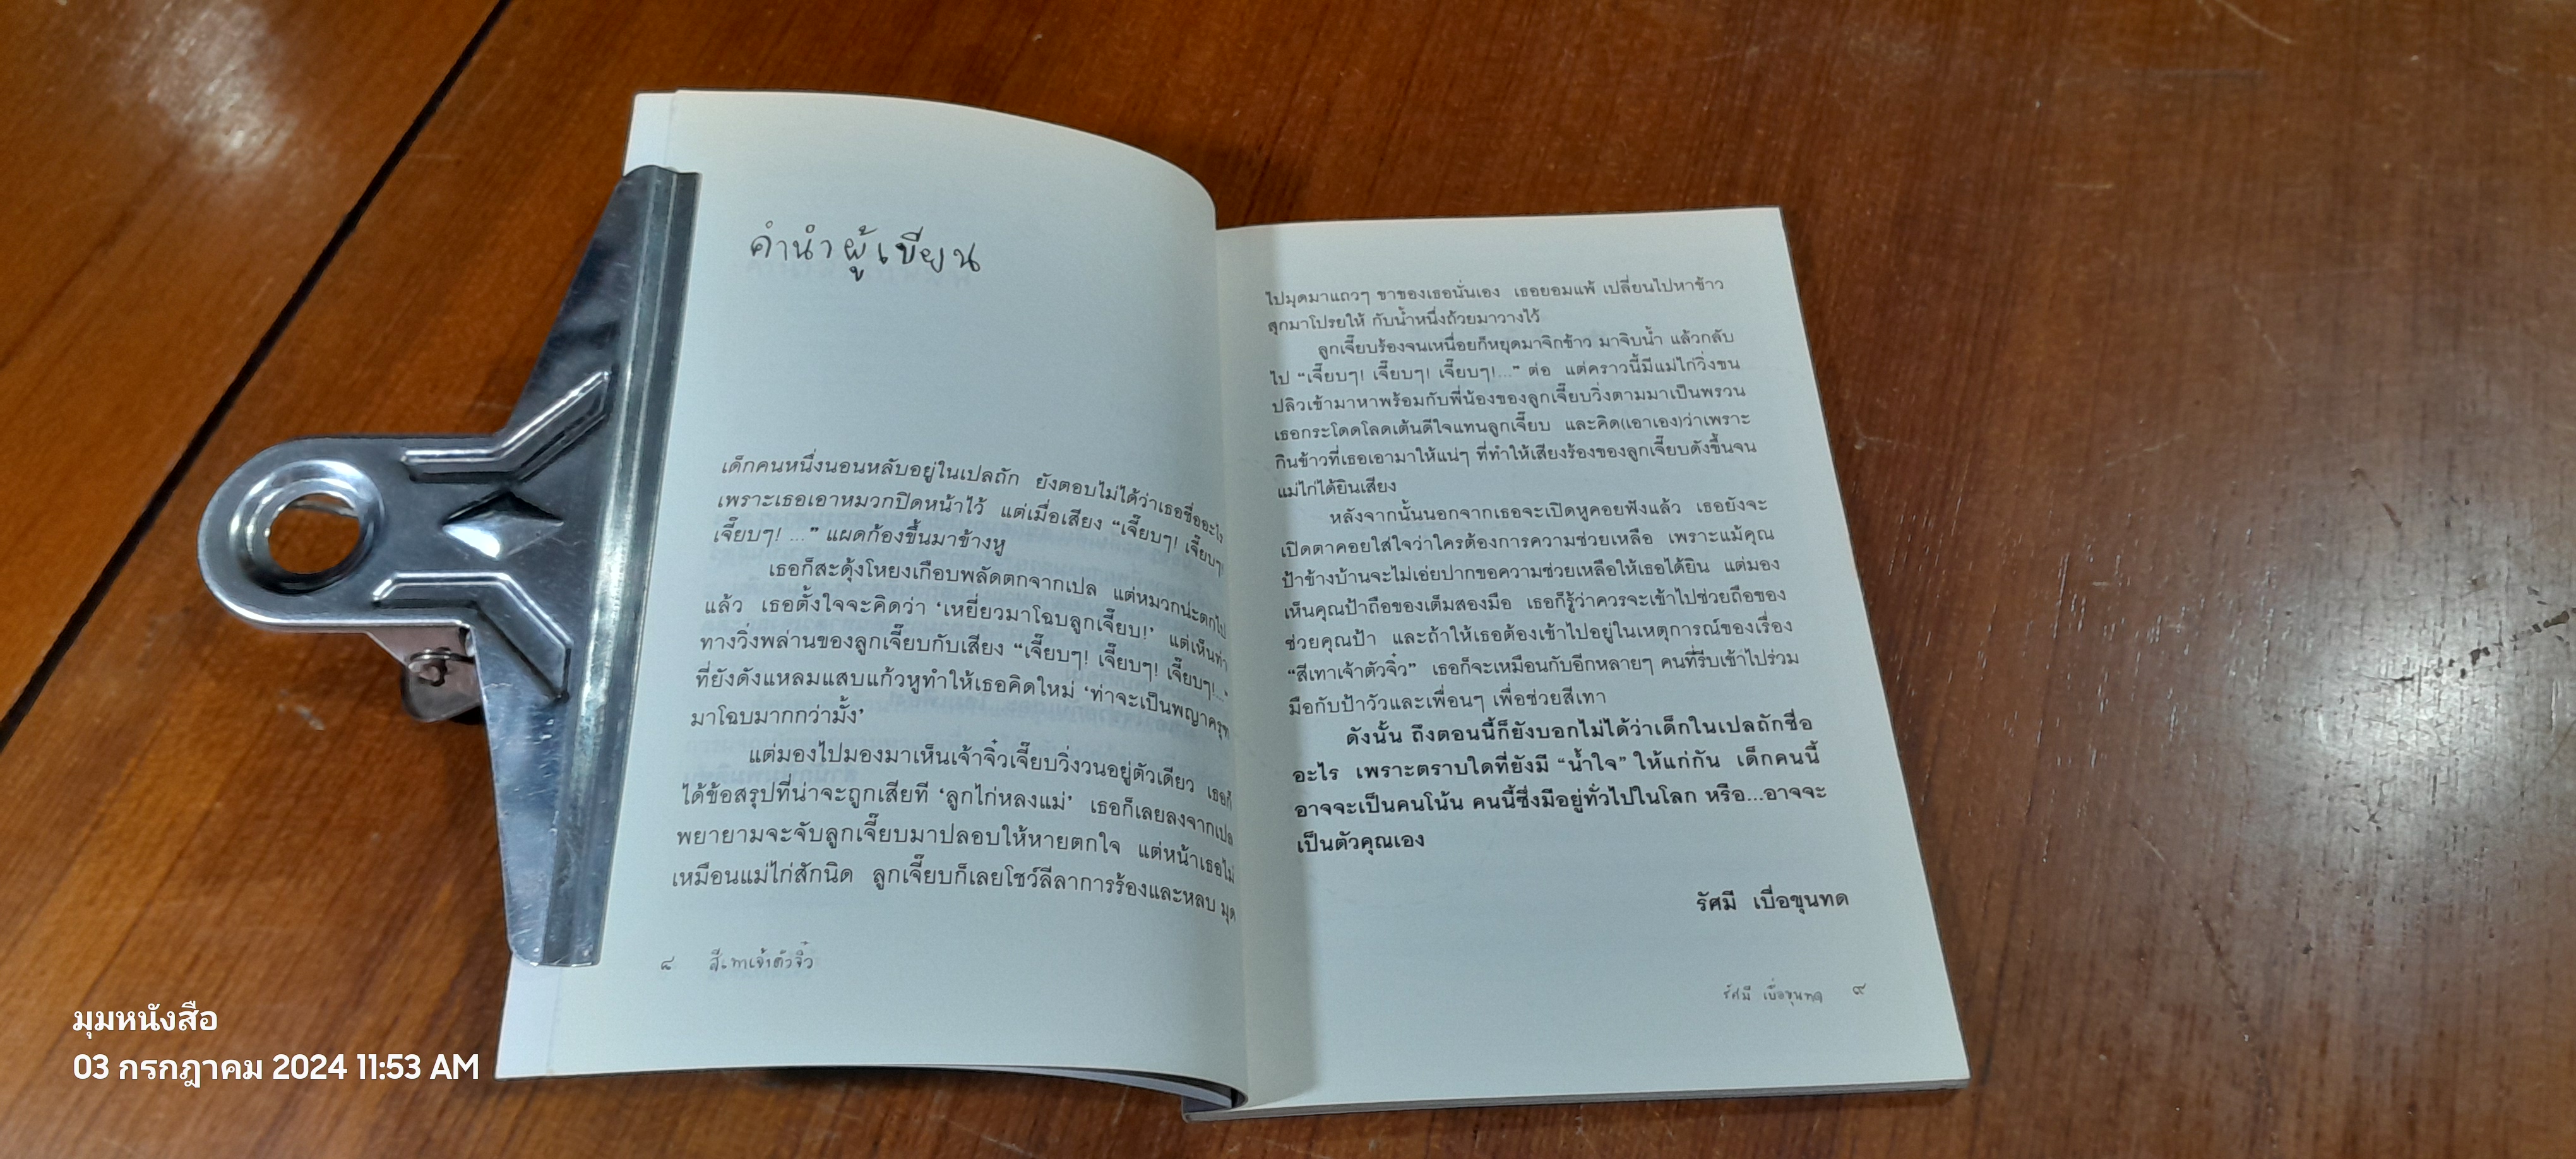 คำนำผู้เขียน
เด็กคนหนึ่งนอนหลับอยู่ในเปลถัก ยังตอบไม่ได้ว่าเธอชื่ออะไร
เพราะเธอเอาหมวกปิดหน้าไว้ แต่เมื่อเสียง “เจี๊ยบๆ! เจี๊ยบๆ!
เจี๊ยบๆ! ...” แผดก้องขึ้นมาข้างหู
เธอก็สะดุ้งโหยงเกือบพลัดตกจากเปล แต่หมวกน่ะตกไป
แล้ว เธอตั้งใจจะคิดว่า ‘เหยี่ยวมาโฉบลูกเจี๊ยบ!’ แต่เห็นท่า
ทางวิ่งพล่านของลูกเจี๊ยบกับเสียง “เจี๊ยบๆ! เจี๊ยบๆ! เจี๊ยบๆ!...”
ที่ยังดังแหลมแสบแก้วหูทำให้เธอคิดใหม่ ‘ท่าจะเป็นพญาครุฑ
มาโฉบมากกว่ามั้ง’
แต่มองไปมองมาเห็นเจ้าจิ๋วเจี๊ยบวิ่งวนอยู่ตัวเดียว เธอก็
ได้ข้อสรุปที่น่าจะถูกเสียที ‘ลูกไก่หลงแม่’ เธอก็เลยลงจากเปล
พยายามจะจับลูกเจี๊ยบมาปลอบให้หายตกใจ แต่หน้าเธอไม่
เหมือนแม่ไก่สักนิด ลูกเจี๊ยบก็เลยโชว์ลีลาการร้องและหลบ มุด
๘ สีเทาเจ้าตัวจิ๋ว
ไปมุดมาแถวๆ ขาของเธอนั่นเอง เธอยอมแพ้ เปลี่ยนไปหาข้าว
สุกมาโปรยให้ กับน้ำหนึ่งถ้วยมาวางไว้
ลูกเจี๊ยบร้องจนเหนื่อยก็หยุดมาจิกข้าว มาจิบน้ำ แล้วกลับ
ไป “เจี๊ยบๆ! เจี๊ยบๆ! เจี๊ยบๆ!...” ต่อ แต่คราวนี้มีแม่ไก่วิ่งขน
ปลิวเข้ามาหาพร้อมกับพี่น้องของลูกเจี๊ยบวิ่งตามมาเป็นพรวน
เธอกระโดดโลดเต้นดีใจแทนลูกเจี๊ยบ และคิด(เอาเอง)ว่าเพราะ
กินข้าวที่เธอเอามาให้แน่ๆ ที่ทำให้เสียงร้องของลูกเจี๊ยบดังขึ้นจน
แม่ไก่ได้ยินเสียง
หลังจากนั้นนอกจากเธอจะเปิดหูคอยฟังแล้ว เธอยังจะ
เปิดตาคอยใส่ใจว่าใครต้องการความช่วยเหลือ เพราะแม้คุณ
ป้าข้างบ้านจะไม่เอ่ยปากขอความช่วยเหลือให้เธอได้ยิน แต่มอง
เห็นคุณป้าถือของเต็มสองมือ เธอก็รู้ว่าควรจะเข้าไปช่วยถือของ
ช่วยคุณป้า และถ้าให้เธอต้องเข้าไปอยู่ในเหตุการณ์ของเรื่อง
“สีเทาเจ้าตัวจิ๋ว” เธอก็จะเหมือนกับอีกหลายๆ คนที่รีบเข้าไปร่วม
มือกับป้าวัวและเพื่อนๆ เพื่อช่วยสีเทา
ดังนั้น ถึงตอนนี้ก็ยังบอกไม่ได้ว่าเด็กในเปลถักชื่อ
อะไร เพราะตราบใดที่ยังมี “น้ำใจ” ให้แก่กัน เด็กคนนี้
อาจจะเป็นคนโน้น คนนี้ซึ่งมีอยู่ทั่วไปในโลก หรือ...อาจจะ
เป็นตัวคุณเอง
รัศมี เบื่อขุนทด
รัศมี เบื่อขุนทด ๙
มุมหนังสือ
03 กรกฎาคม 2024 11:53 AM